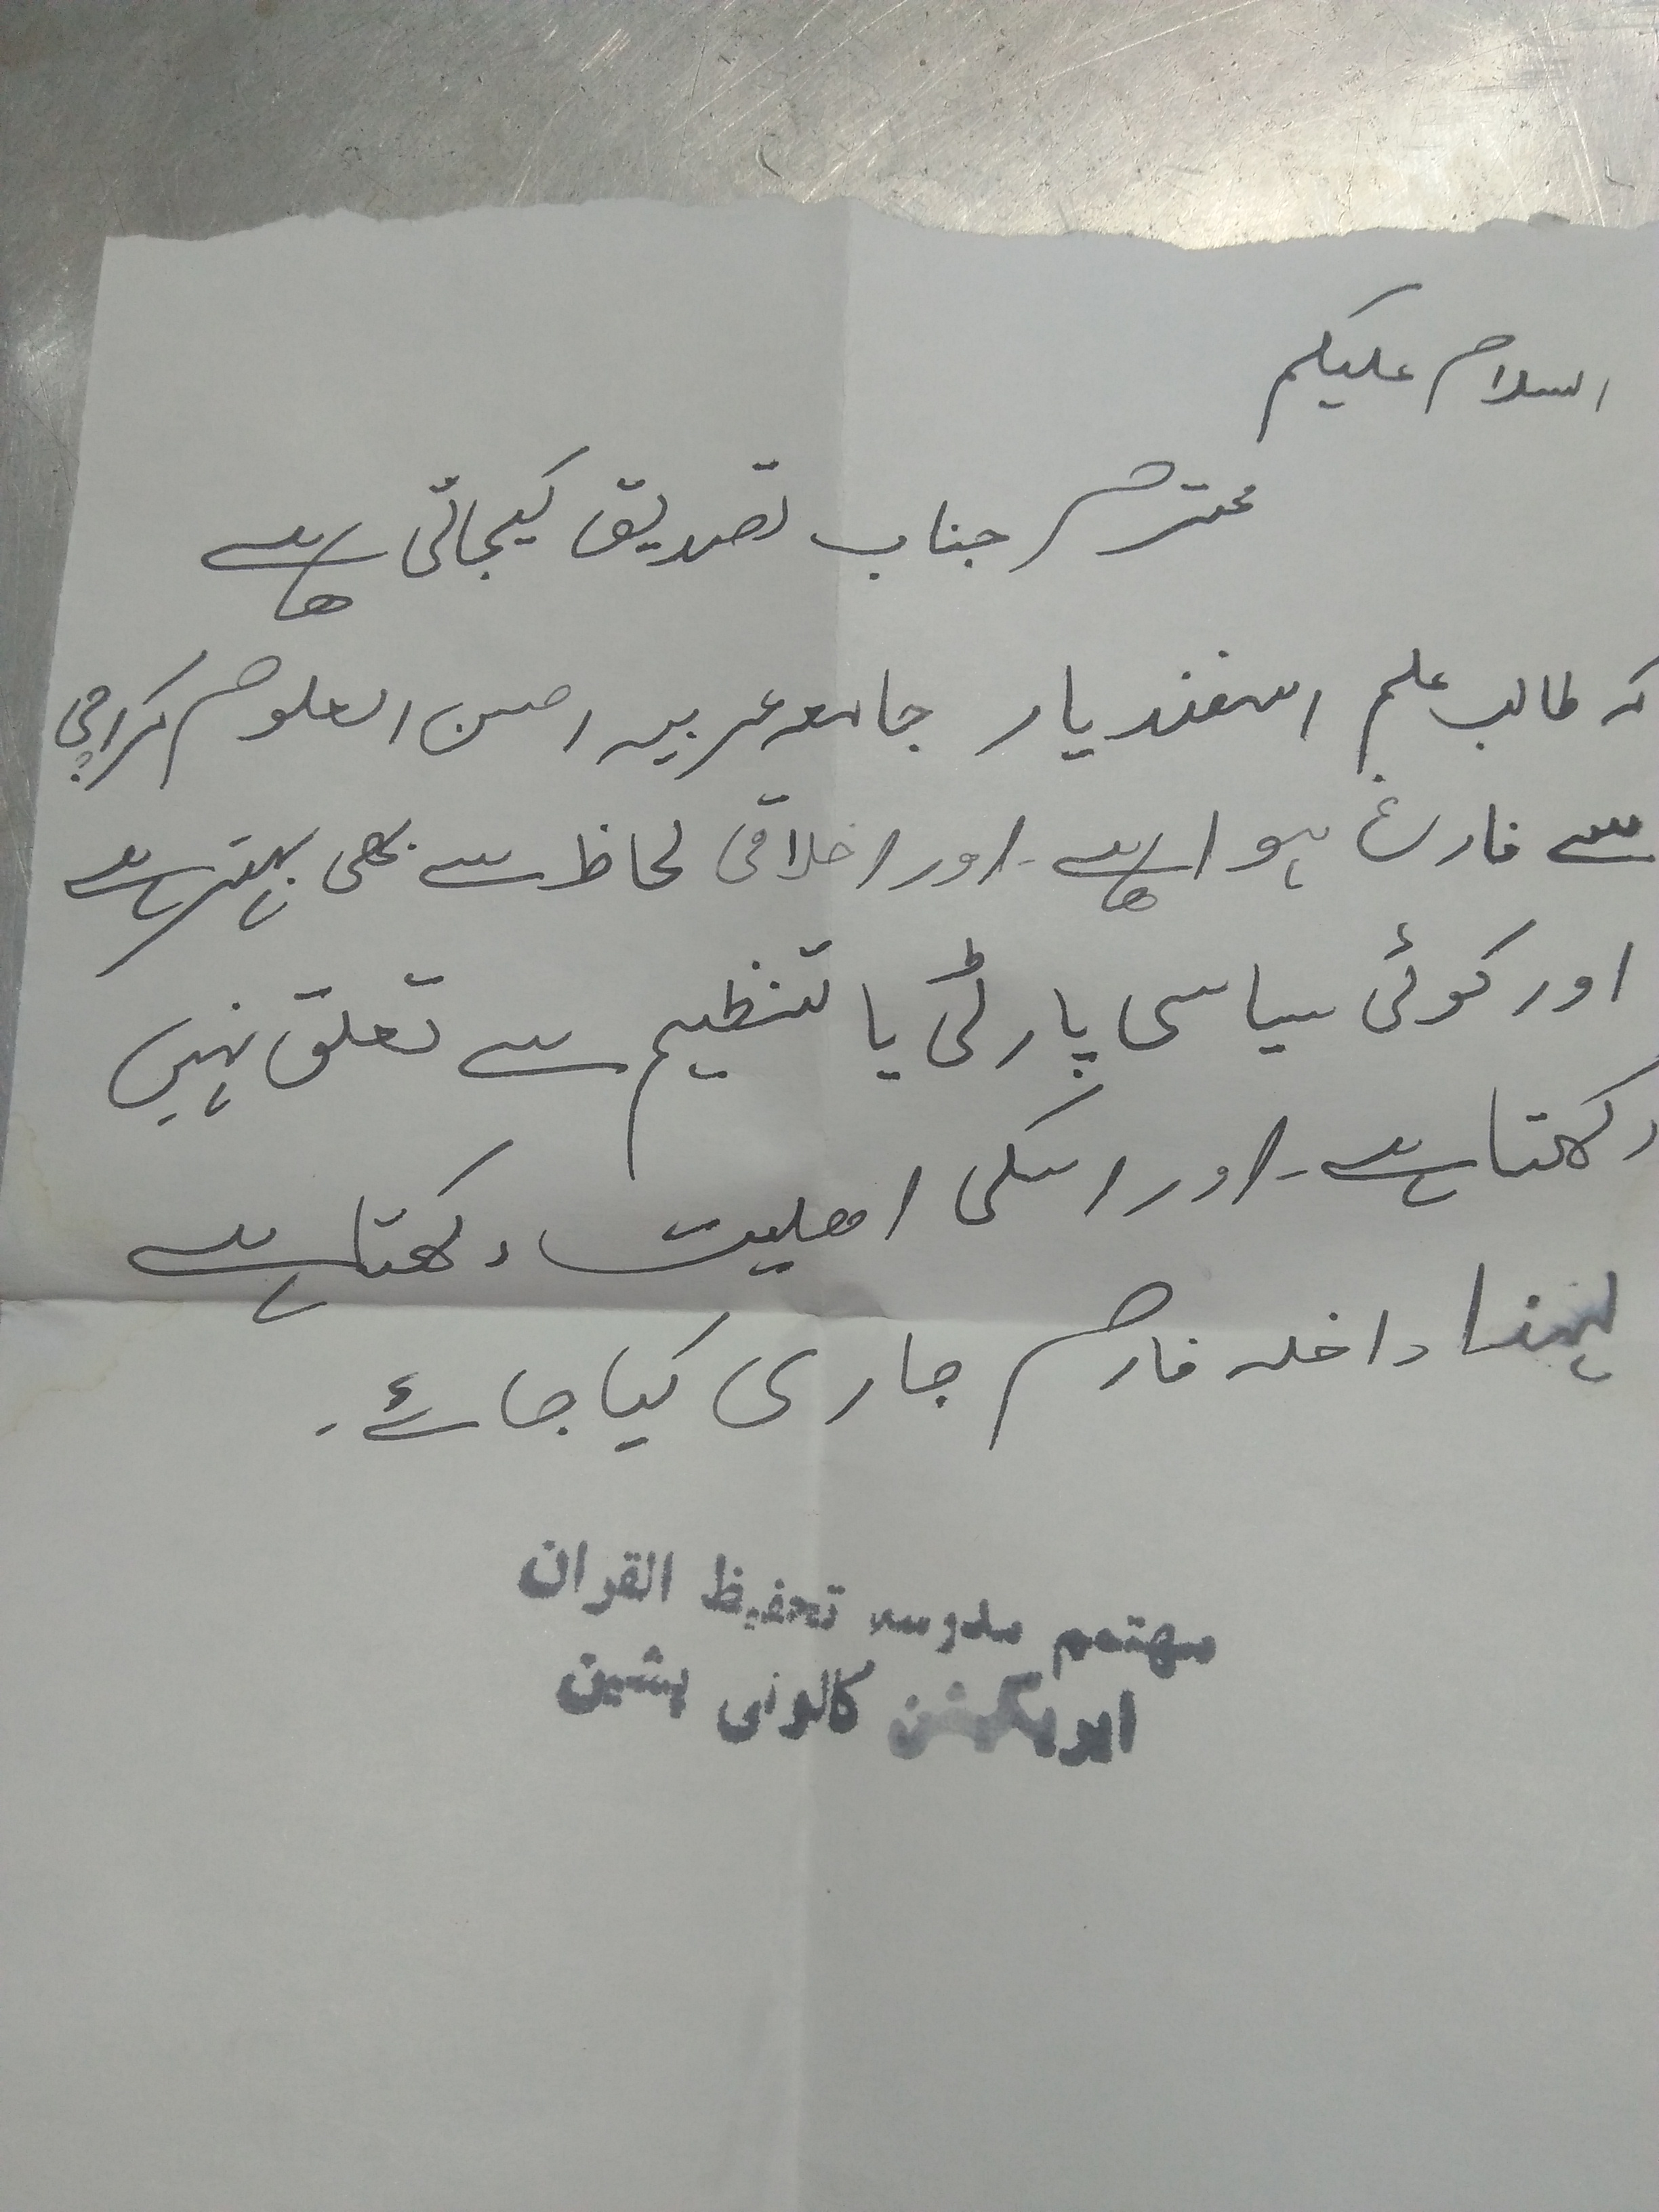 اسلام علیکم
محترم جناب تصدیق کیجاتی ہے
کہ طالب علم اسفند یار جامعہ عربیہ احسن العلوم کراچی
سے فارغ ہوا ہے۔ اور اخلاقی لحاظ سے بھی بہتر ہے
اور کوئی سیاسی پارٹی یا تنظیم سے تعلق نہیں
رکھتا ہے۔ اور اسکی اھلیت رکھتا ہے
لہٰذا داخلہ فارم جاری کیا جائے۔
مہتمم مدرسہ تحفیظ القران
ایریگیشن کالونی پشین